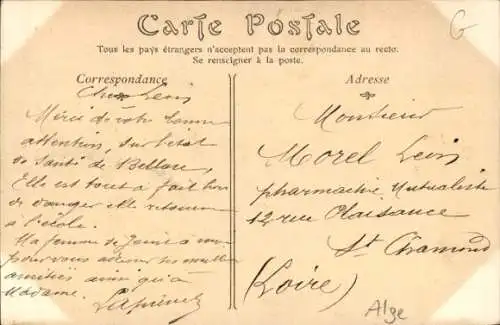 Carte Postale
Tous les pays étrangers n'acceptent pas la correspondance au recto.
Se renseigner à la poste.
Correspondance
Cher Leon
Merci de votre bonne
attention, sur l'état
de santé de
Elle est tout à fait hors
de danger elle retourne
à l'école.
Ma femme se joint à moi
pour vous
amitiés ainsi qu'à
Madame.
Adresse
Monsieur
Morel Leon
pharmacie Mutualiste
12 rue Plaisance
St Chamond
(Loire)
Alge
G